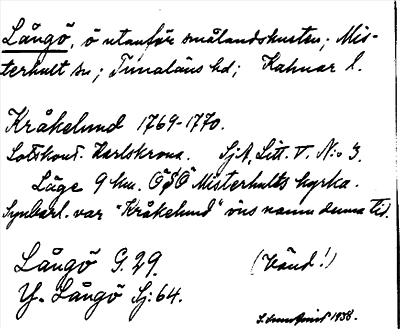 Långö, ö utanför smålandskusten; Mis-
terhult sn; Tunaläns hd; Kalmar l.
Kråkelund 1769-1770.
Lotskont. Karlskrona. SjA, Litt. V. N:o 3.
Läge 9 km. ÖSÖ Misterhults kyrka.
Synbarl. var "Kråkelund" öns namn denna tid.
Långö G. 29.
(Vänd!)
Y. Långö Sj: 64.
1938.